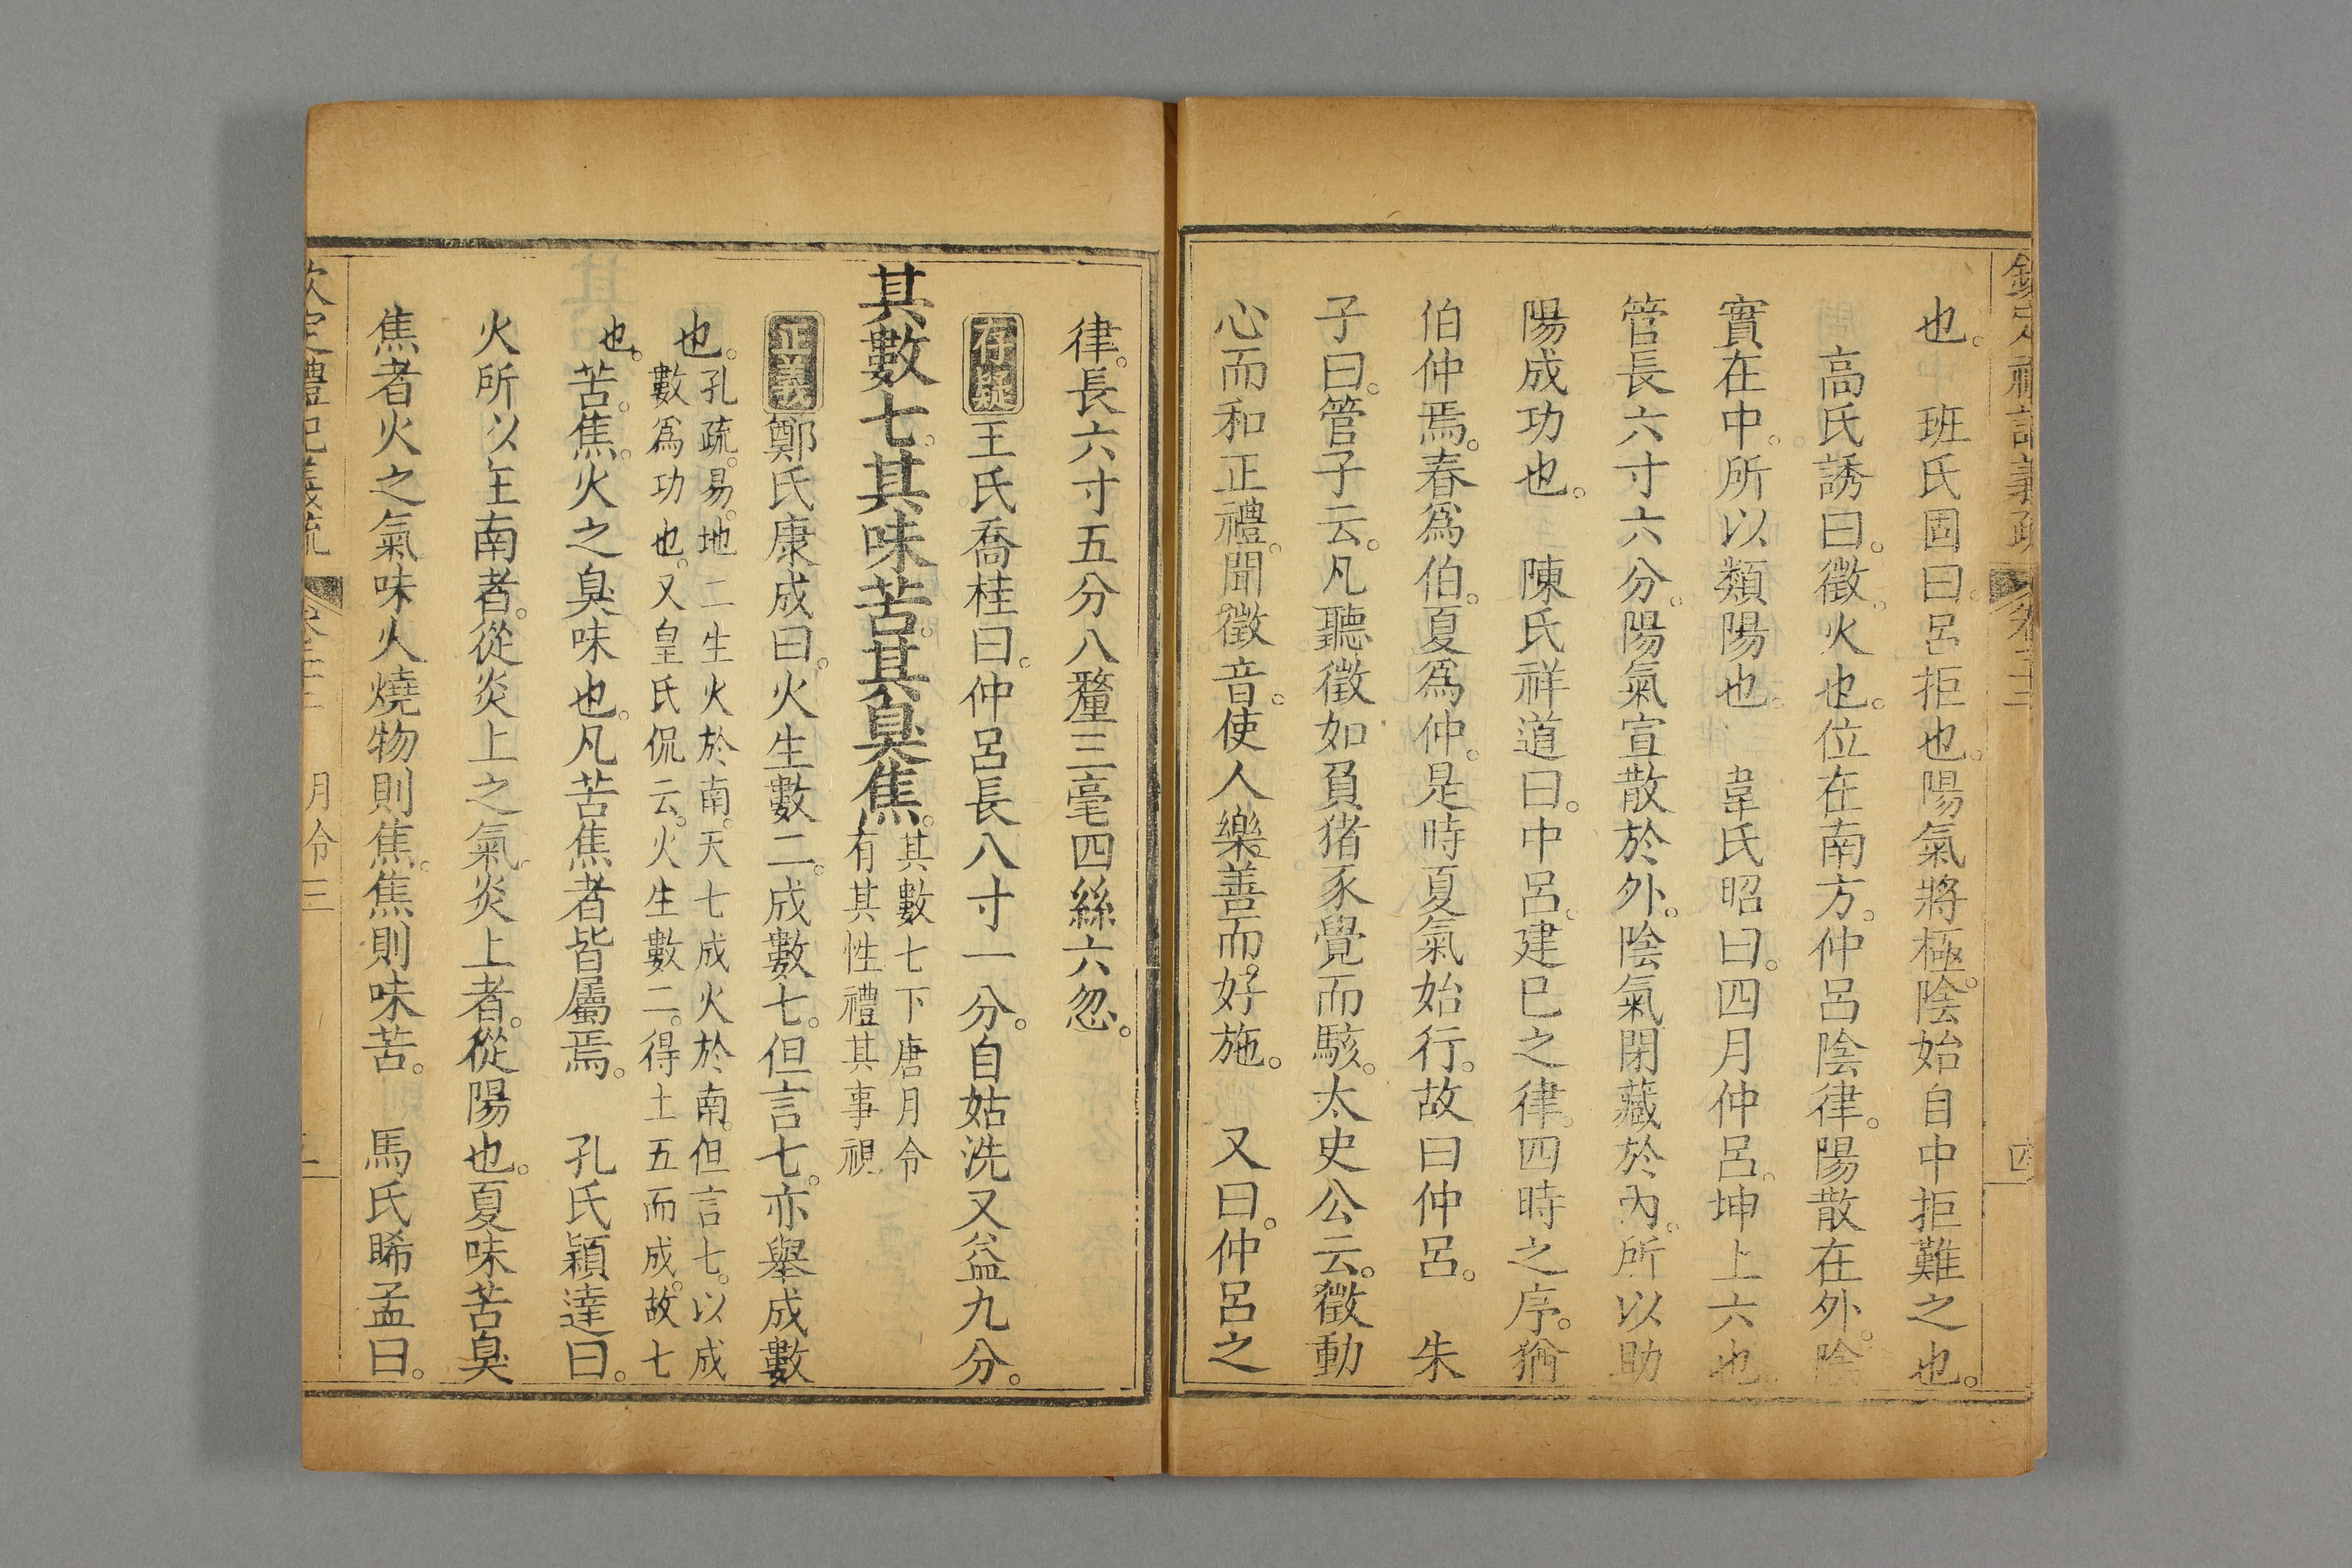 欽定禮記義疏 卷二十二 四
也。　班氏固曰。呂拒也。陽氣將極。陰始自中拒難之也。
高氏誘曰。徵。火也。位在南方。仲呂陰律。陽散在外。陰
實在中。所以類陽也。　韋氏昭曰。四月仲呂。坤上六也。
管長六寸六分。陽氣宣散於外。陰氣閉藏於內。所以助
陽成功也。　陳氏祥道曰。中呂。建巳之律。四時之序。猶
伯仲焉。春爲伯。夏爲仲。是時夏氣始行。故曰仲呂。　朱
子曰。管子云。凡聽徵如負猪豕覺而駭。太史公云。徵動
心而和正禮。聞徵音。使人樂善而好施。　又曰。仲呂之
律。長六寸五分八釐三毫四絲六忽。
存疑王氏喬桂曰。仲呂長八寸一分。自姑洗又益九分。
其數七。其味苦。其臭焦。其數七下唐月令
有其性禮其事視
正義鄭氏康成曰。火生數二。成數七。但言七。亦舉成數
也。孔疏。易。地二生火於南。天七成火於南。但言七。以成
數爲功也。又皇氏侃云。火生數二。得土五而成。故七
也。苦。焦。火之臭味也。凡苦焦者皆屬焉。　孔氏穎達曰。
火所以在南者。從炎上之氣。炎上者。從陽也。夏味苦臭
焦者火之氣味火燒物則焦。焦則味苦。　馬氏睎孟曰。
欽定禮記義疏 月令三